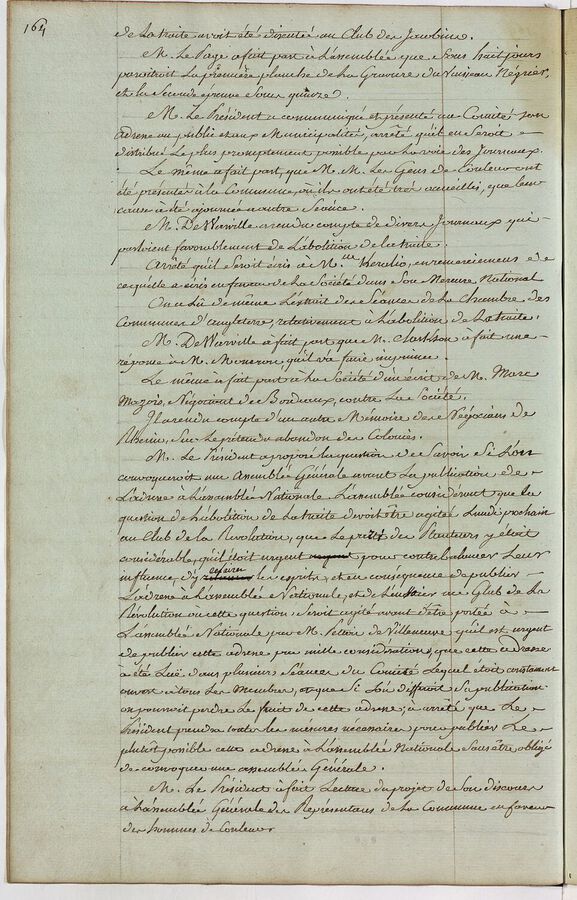 164
de la traite avoit été discutée au Club des Jacobins.
M. Le Page a fait part à l'assemblée que sous huit jours
paroitroit la première planche de la Gravure du Vaisseau Négrier,
et la seconde épreuve sous quinze.
M. Le Président a communiqué et présenté au Comité son
adresse au public et aux Municipalités, arrêté qu'il en seroit
distribué le plus promptement possible par la voie des Journaux.
Le même a fait part, que M. M. Les Gens de Couleur ont
été présentés à la Commune, où ils ont été très accueillis, que leur
cause a été ajournée a autre Séance.
M. De Warville a rendu compte de divers Journaux qui
parloient favorablement de l'abolition de la traite.
Arrêté qu'il seroit écris à Mlle Keralio, en remerciemens de
ce qu'elle a écris en faveur de la Société dans son Mercure National
On a Lû de même l'extrait des Séances de la Chambre des
Communes d'angleterre, relativement à l'abolition de la traite.
M. De Warville a fait part que M. Clarkson a fait une
réponse à M. Monneron, qu'il va faire imprimer.
Le même a fait part à la Société d'un écrit de M. Marc
Mazois, Négociant de Bordeaux, contre la Société.
Il a rendu compte d'un autre Mémoire des Négocians de
sur le prétendu abandon des Colonies.
M. Le Président a proposé la question de savoir si l'on
convoqueroit une Assemblée Générale avant la publication de
L'adresse à l'assemblée Nationale. L'assemblée considérant que la
question de l'abolition de la traite devoit être agitée Lundi prochain
au Club de la Révolution, que le parti des y étoit
considérable, qu'il étoit urgent pour contrebalancer leur
influence, d'y éclairer les esprits, et en conséquence de publier
L'adresse à l'assemblée Nationale, et de au Club de la
Révolution où cette question seroit agité avant d'être portée à
L'assemblée Nationale par M. Petion de Villeneuve qu'il est urgent
de publier cette adresse par mille considérations, que cette adresse
a été Luë dans plusieurs séances du Comité Lequel étoit constament
ouvert à tous les Membres, et que si l'on différoit sa publication
on pourroit perdre le fruit de cette adresse; a arreté que Le
Président prendra toutes les mésures nécessaires pour publier Le
plutôt possible cette adresse à l'assemblée Nationale sans être obligé
de convoquer une assemblée Générale.
M. Le Président a fait Lecture du projet de son discours
à l'assemblée Générale des Représentans de la Commune en faveur
des hommes de Couleur